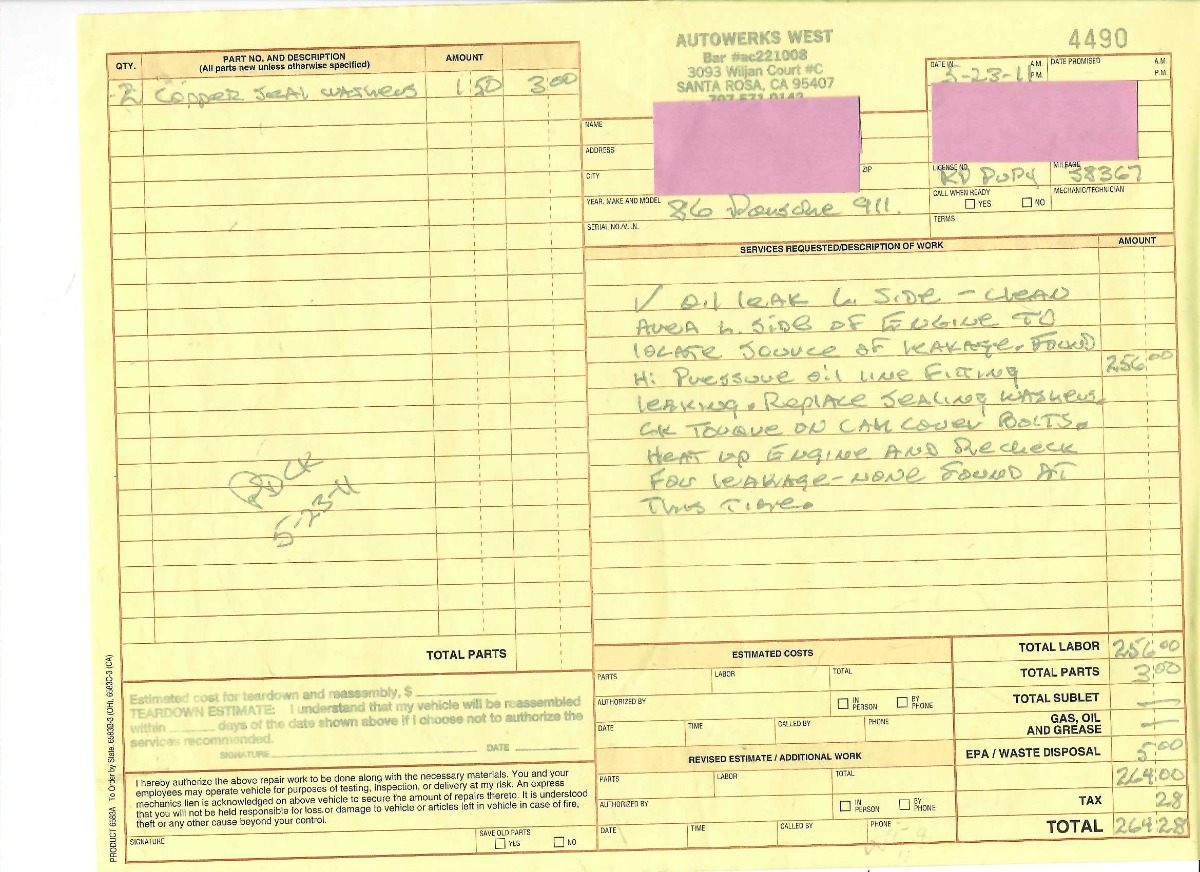 AUTOWERKS WEST
Bar #ac221008
3093 Wiljan Court #C
SANTA ROSA, CA 95407
707-571-0143
4490
DATE IN A.M. P.M. DATE PROMISED A.M. P.M.
5-23-11
QTY. PART NO. AND DESCRIPTION AMOUNT
(All parts new unless otherwise specified)
2 COPPER SEAL WASHERS 1 50 3.00
NAME
ADDRESS
CITY ZIP
LICENSE NO. MILEAGE
38367
CALL WHEN READY MECHANIC/TECHNICIAN
YES NO
YEAR, MAKE AND MODEL 86 Porsche 911.
SERIAL NO./V.I.N. TERMS
SERVICES REQUESTED/DESCRIPTION OF WORK AMOUNT
✓ OIL LEAK L. SIDE - CLEAN
AREA L. SIDE OF ENGINE TO
LOCATE SOURCE OF LEAKAGE. FOUND
Hi PRESSURE OIL LINE FITTING 256.00
LEAKING. REPLACE SEALING WASHERS.
CK TORQUE ON CAM COVER BOLTS.
HEAT UP ENGINE AND RECHECK
FOR LEAKAGE - NONE FOUND AT
THIS TIME.
PD CK
5-23-11
TOTAL PARTS
Estimated cost for teardown and reassembly, $
TEARDOWN ESTIMATE: I understand that my vehicle will be reassembled
within days of the date shown above if I choose not to authorize the
services recommended.
SIGNATURE DATE
I hereby authorize the above repair work to be done along with the necessary materials. You and your
employees may operate vehicle for purposes of testing, inspection, or delivery at my risk. An express
mechanics lien is acknowledged on above vehicle to secure the amount of repairs thereto. It is understood
that you will not be held responsible for loss or damage to vehicle or articles left in vehicle in case of fire,
theft or any other cause beyond your control.
SIGNATURE SAVE OLD PARTS
YES NO
PRODUCT 658A To Order by State, 6583B-3 (OH), 6583C-3 (CA)
ESTIMATED COSTS
PARTS LABOR TOTAL
AUTHORIZED BY IN PERSON BY PHONE
DATE TIME CALLED BY PHONE
REVISED ESTIMATE / ADDITIONAL WORK
PARTS LABOR TOTAL
AUTHORIZED BY IN PERSON BY PHONE
DATE TIME CALLED BY PHONE
TOTAL LABOR 256.00
TOTAL PARTS 3.00
TOTAL SUBLET
GAS, OIL
AND GREASE
EPA / WASTE DISPOSAL 5.00
264.00
TAX 28
TOTAL 264.28